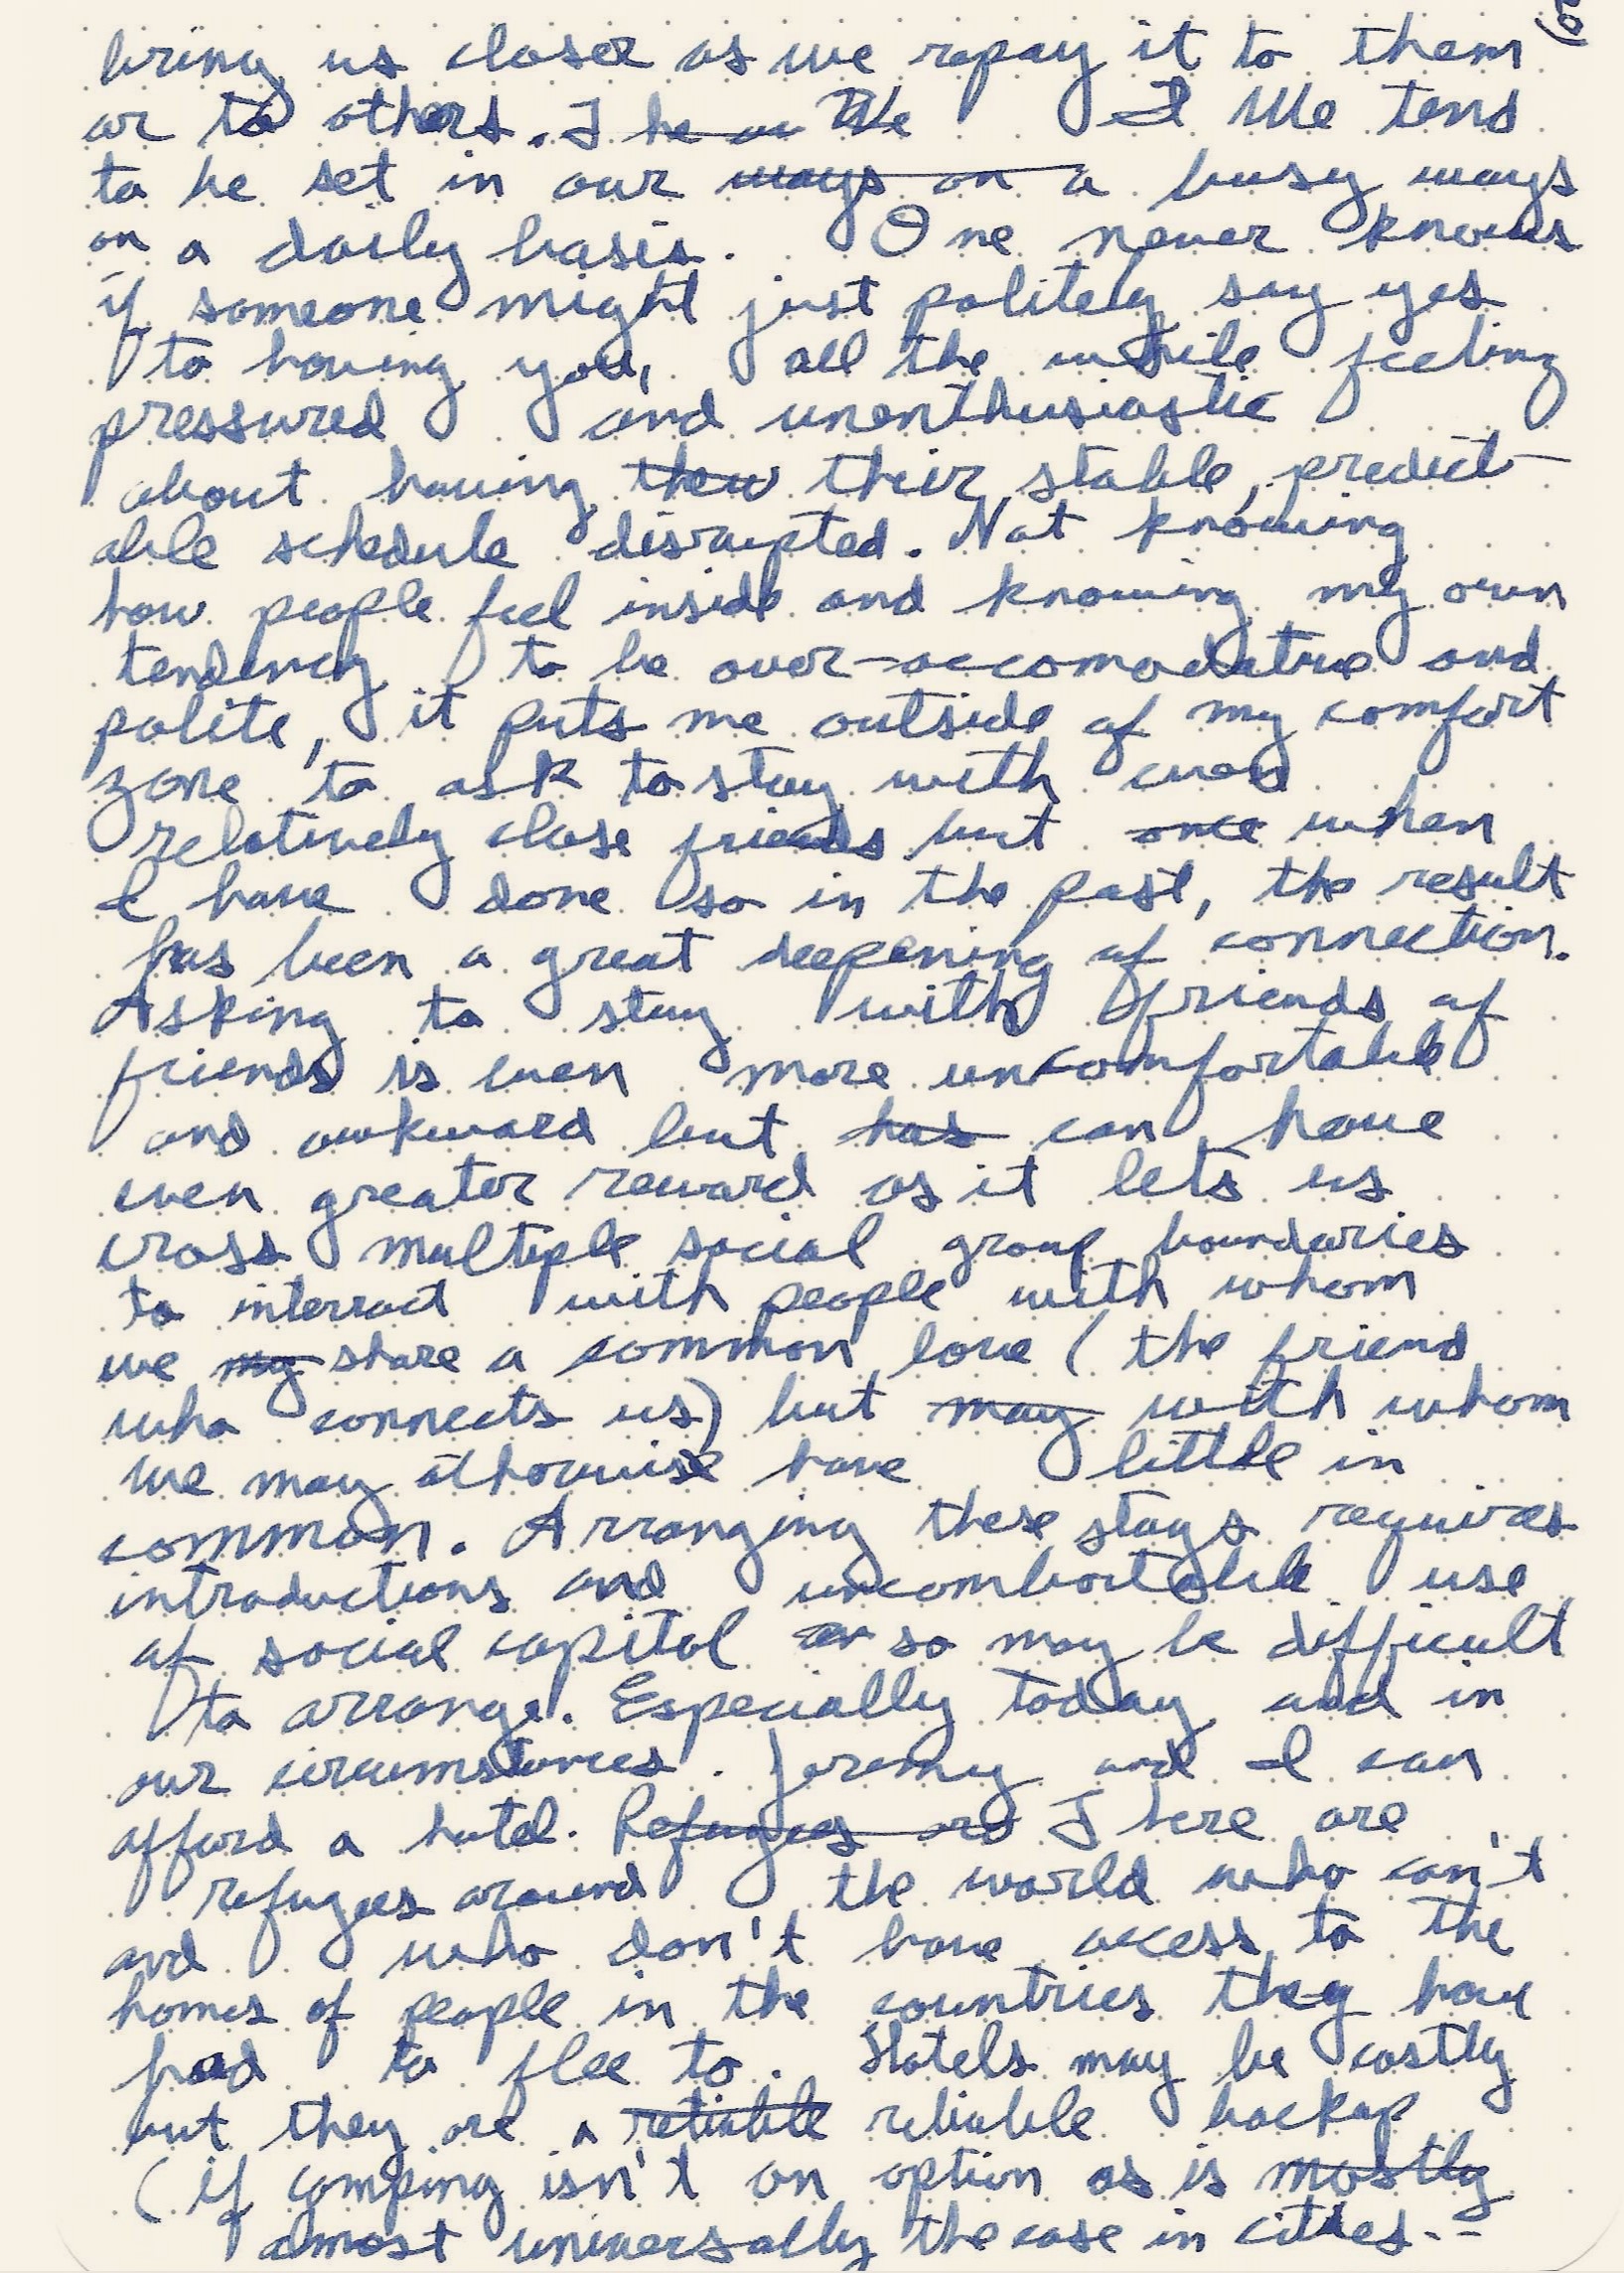 bring us closer as we repay it to them
or to others. I be on We I We tend
to be set in our ways on a busy ways
on a daily basis. One never knows
if someone might just politely say yes
to having you, all the while feeling
pressured and unenthusiastic
about having their stable, predict-
able schedule disrupted. Not knowing
how people feel inside and knowing my own
tendency to be over-accomodative and
polite, it puts me outside of my comfort
zone to ask to stay with even
relatively close friends but once when
I have done so in the past, the result
has been a great deepening of connection.
Asking to stay with friends of
friends is even more uncomfortable
and awkward but has can have
even greater reward as it lets us
cross multiple social group boundaries
to interract with people with whom
we my share a common love (the friend
who connects us) but may with whom
we may otherwise have little in
common. Arranging these stays requires
introductions and uncombortable use
of social capital or so may be difficult
to arrange. Especially today and in
our circumstances. Jeremy and I can
afford a hotel. Refugees are There are
refugees around the world who can't
and who don't have access to the
homes of people in the countries they have
had to flee to. Hotels may be costly
but they are a reliable reliable backup
(if camping isn't an option as is mostly
amost universally the case in cities--